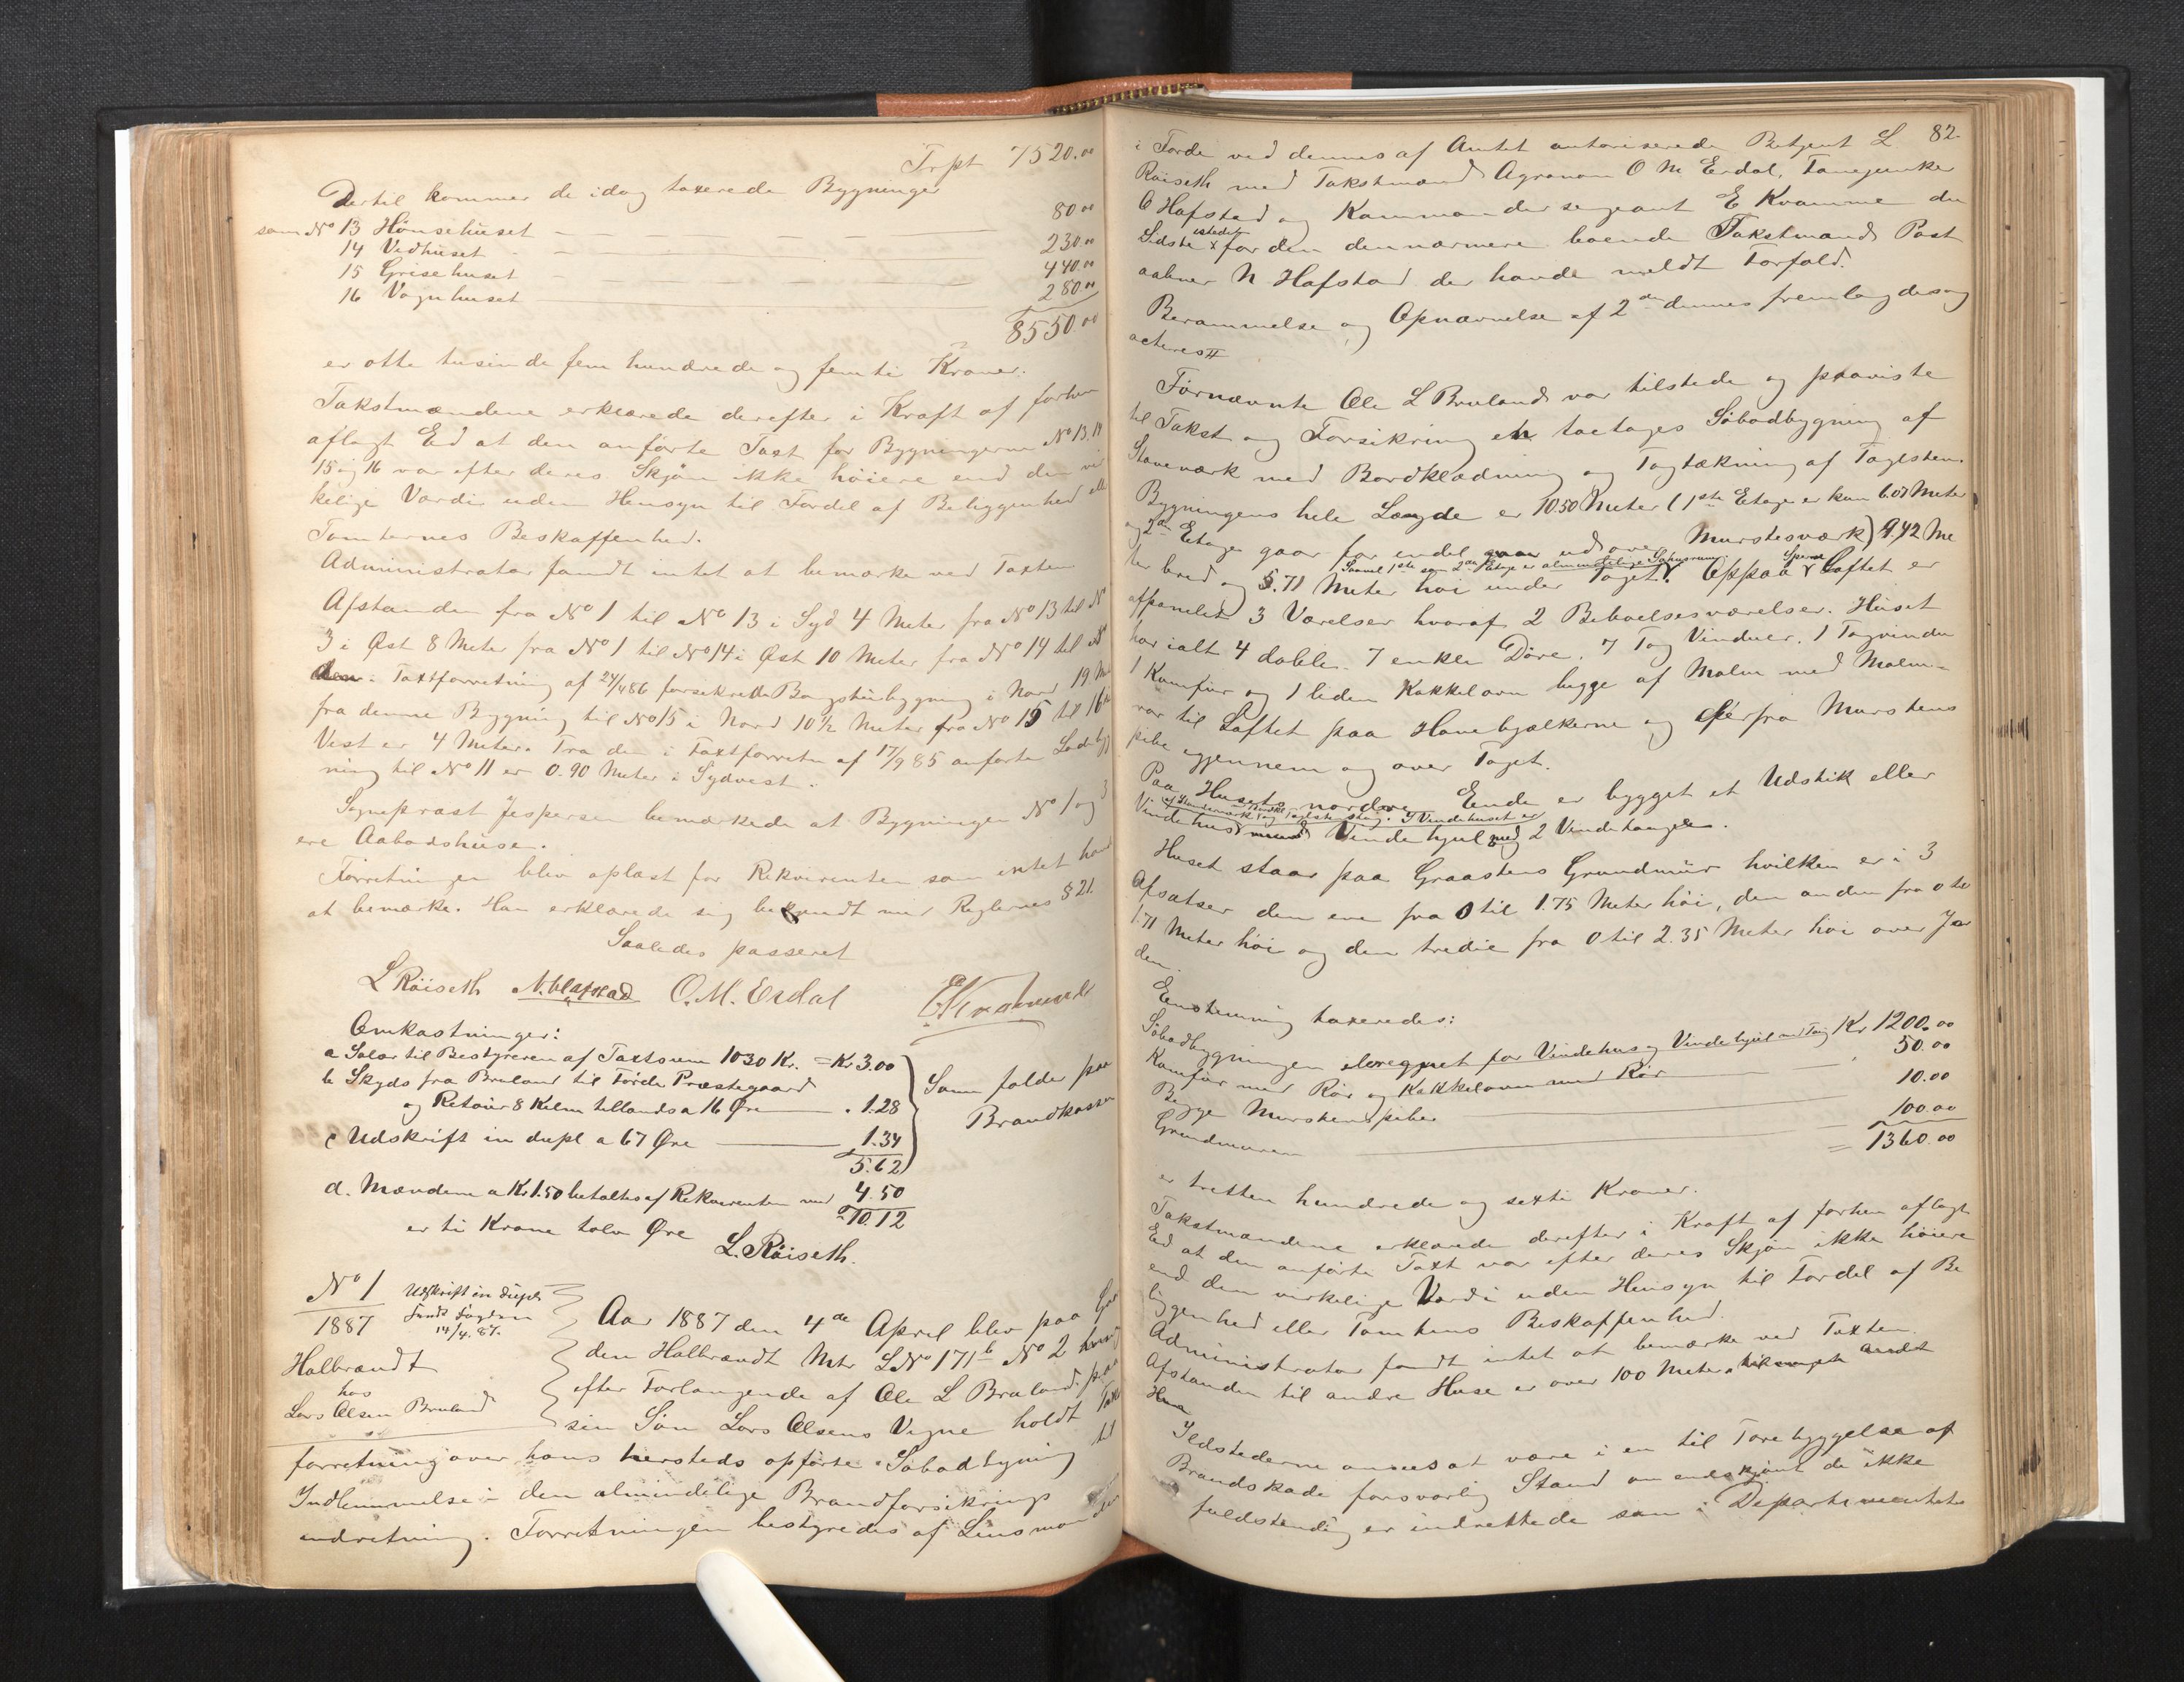 Trpt 7520.00
Dertil kommer de idag taxerede Bygninger
som No 13 Hönsehuset — 80.00
14 Vedhuset — 230.00
15 Grisehuset — 440.00
16 Vognhuset 280.00
8550.00
er otte tusinde fem hundrede og femti Kroner.
Takstmændene erklærede derefter i Kraft af forhen
aflagt Ed at den anförte Taxt for Bygningerne No 13.14
15 og 16 var efter deres Skjön ikke höiere end den vir
kelige Værdi uden Hensyn til Fordel af Beliggenhed ell
Tomternes Beskaffenhed.
Administrator fandt intet at bemærke ved Taxten
Afstanden fra No 1 til No 13 i Syd 4 Meter fra No 13 til No
3 i Øst 8 Meter fra No 1 til No 14 i Øst 10 Meter fra No 14 til
i Taxtforretning af 24/4 86 forsekrede Borgstubygning i Nord 19 Me
fra denne Bygning til No 15 i Nord 10 1/2 Meter fra No 15 til 16 i
Vest er 4 Meter. Fra den i Taxtforretn af 17/9 85 anförte Ladebyg
ning til No 11 er 0.90 Meter i Sydvest.
Sogneprest Jespersen bemærkede at Bygningen No 1 og 3
ere Aabodshuse.
Forretningen blev oplæst for Rekvirenten som intet havde
at bemærke. Han erklærede sig bekjendt med Reglernes § 21.
Saaledes passeret
L Röiseth N. Hafstad O. M. Erdal E Kvamme
Omkostninger:
a Salær til Bestyreren af Taxtsum 1030 Kr. = Kr 3.00
b Skyds fra Bruland til Förde Præstegaard
og Retour 8 Kilm tillands a 16 Øre — " 1.28
c Udskrift in dupl a 67 Øre — 1.34
5.62
Som falder paa
Brandkassen
d. Mændene a Kr 1.50 betaltes af Rekvirenten med 4.50
= 10.12
er ti Krone tolv Øre
L. Röiseth.
No 1
1887
Udskrift in duplo
Sendt Fogden
14/4. 87.
Halbrændt
hos
Lars Olsen Bruland
Aar 1887 den 4de April blev paa Gaar
den Halbrændt Mtr LNo 171b No 2
efter Forlangende af Ole L Bruland paa
sin Sön Lars Olsens Vegne holdt Taxt
forretning over hans hersteds opförte Söbodbygning til
Indlemmelse i den almindelige Brandforsikrings
indretning. Forretningen bestyredes af Linsmanden
82.
i Förde ved dennes af Amtet autoriserede Betjent L
Röiseth med Takstmænd Agronom O M Erdal, Fanejunker
O Hafstad og Kommandersergeant E Kvamme den
Sidste istedet for den dennærmere boende Takstmand Post
aabner N Hafstad der havde meldt Forfald.
Berammelse og Opnævnelse af 2den dennes fremlagdes og
acteres
Förnævnte Ole L Bruland var tilstede og paaviste
til Takst og Forsikring en toetages Söbodbygning af
Staveværk med Bordklædning og Tagtækning af Taglsten.
Bygningens hele Længde er 10.50 Meter (1ste Etage er kun 6.07 Meter
og 2den Etage gaar for endel ud over Murstesværk) 9.42 Me
ter bred og 5.71 Meter höi under Taget. Saavel 1ste som 2den Etage er almindelige Oppaa Sperre Loftet er
afpanelet 3 Værelser hvoraf 2 Beboelsesværelser. Huset
har ialt 4 doble. 7 enkle Döre. 7 Fag Vinduer. 1 Tagvindu
1 Komfur og 1 liden Kakkelovn begge af Malm med Malm-
rör til Loftet paa Hanebjælkerne og derfra Murstens
pibe igjennem og over Taget.
Paa Husets nordre Ende er bygget et Udstik eller
Vindehus af Staveværk og Taglstenstag. I Vindehuset er Vindehjul med 2 Vindetaugler.
Huset staar paa Graastens Grundmür hvilken er i 3
Afsatser den ene fra 0 til 1.75 Meter höi, den anden fra 0 til
1.71 Meter höi og den tredie fra 0 til 2.35 Meter höi over Jor
den.
Eenstemmig taxeredes:
Söbodbygningen iberegnet for Vindehus og Vindehjul med Taug Kr 1200.00
Komfur med Rör og Kakkelovn med Rör — " 50.00
Begge Murstenspiber 10.00
Grundmuren — 100.00
= 1360.00
er tretten hundrede og sexti Kroner.
Takstmændene erklærede derefter i Kraft af forhen aflagt
Ed at den anförte Taxt var efter deres Skjön ikke höiere
end den virkelige Værdi uden Hensyn til Fordel af Be
liggenhed eller Tomtens Beskaffenhed.
Administrator fandt intet at bemærke ved Taxten.
Afstanden til andre Huse er over 100 Meter
Ildstederne ansees at være i en til Forebyggelse af
Brandskade forsvarlig Stand om endskjönt de ikke
fuldstendig er indrettede som i Departementets